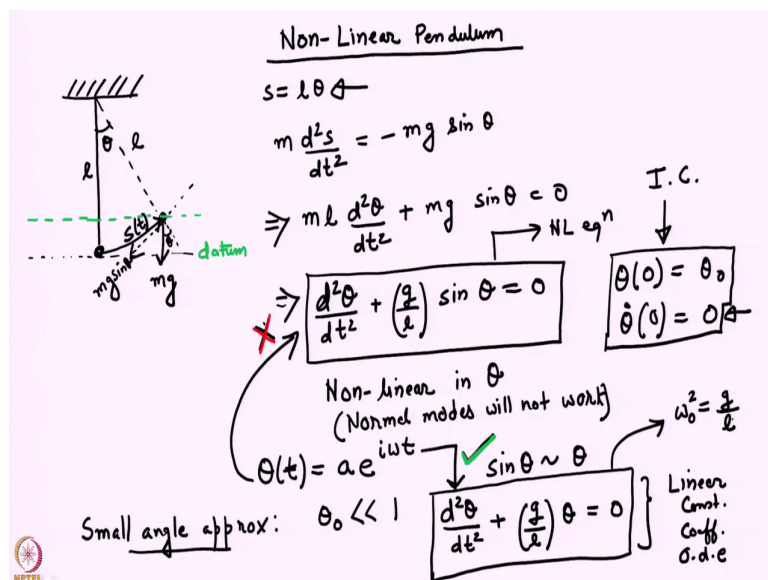 Non-Linear Pendulum
s = lθ
m d²s/dt² = -mg sin θ
⇒ ml d²θ/dt² + mg sin θ = 0
NL eqⁿ
⇒ d²θ/dt² + (g/l) sin θ = 0
I.C.
θ(0) = θ₀
θ̇(0) = 0
θ
l
l
s(t)
θ
mg sinθ
mg
datum
Non-linear in θ
(Normal modes will not work)
θ(t) = a e^{iωt}
sin θ ~ θ
ω₀² = g/l
Small angle approx: θ₀ << 1
d²θ/dt² + (g/l) θ = 0
Linear
Const.
Coeff.
o.d.e
NPTEL